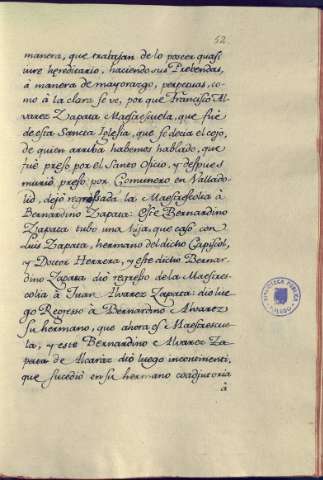 52
manera, que trabajan de lo poseer quasi
iure hereditario, haciendo sus Prebendas,
à manera de mayorazgo, perpetuas, co-
mo à la clara se ve, por que Francisco Al-
varez Zapata Maestrescuela, que fue
de esta Sancta Iglesia, que se decia el cojo,
de quien arriba habemos hablado, que
fuè preso por el Santo Oficio, y despues
murió preso por Comunero en Vallado-
lid, dejo regressada la Maestrescolia à
Bernardino Zapata: este Bernardino
Zapata tubo una hija, que casò con
Luis Zapata, hermano del dicho Capiscol,
y Doctor Herrera, y este dicho Bernar-
dino Zapata diò regresso de la Maestres-
colia à Juan Alvarez Zapata: dio lue-
go Regresso à Bernardino Alvarez
su hermano, que ahora es Maestrescue-
la, y este Bernardino Alvarez Za-
pata de Alcaraz diò luego incontinenti,
que sucediò en su hermano coadjutoria
à
BIBLIOTECA PUBLICA
TOLEDO